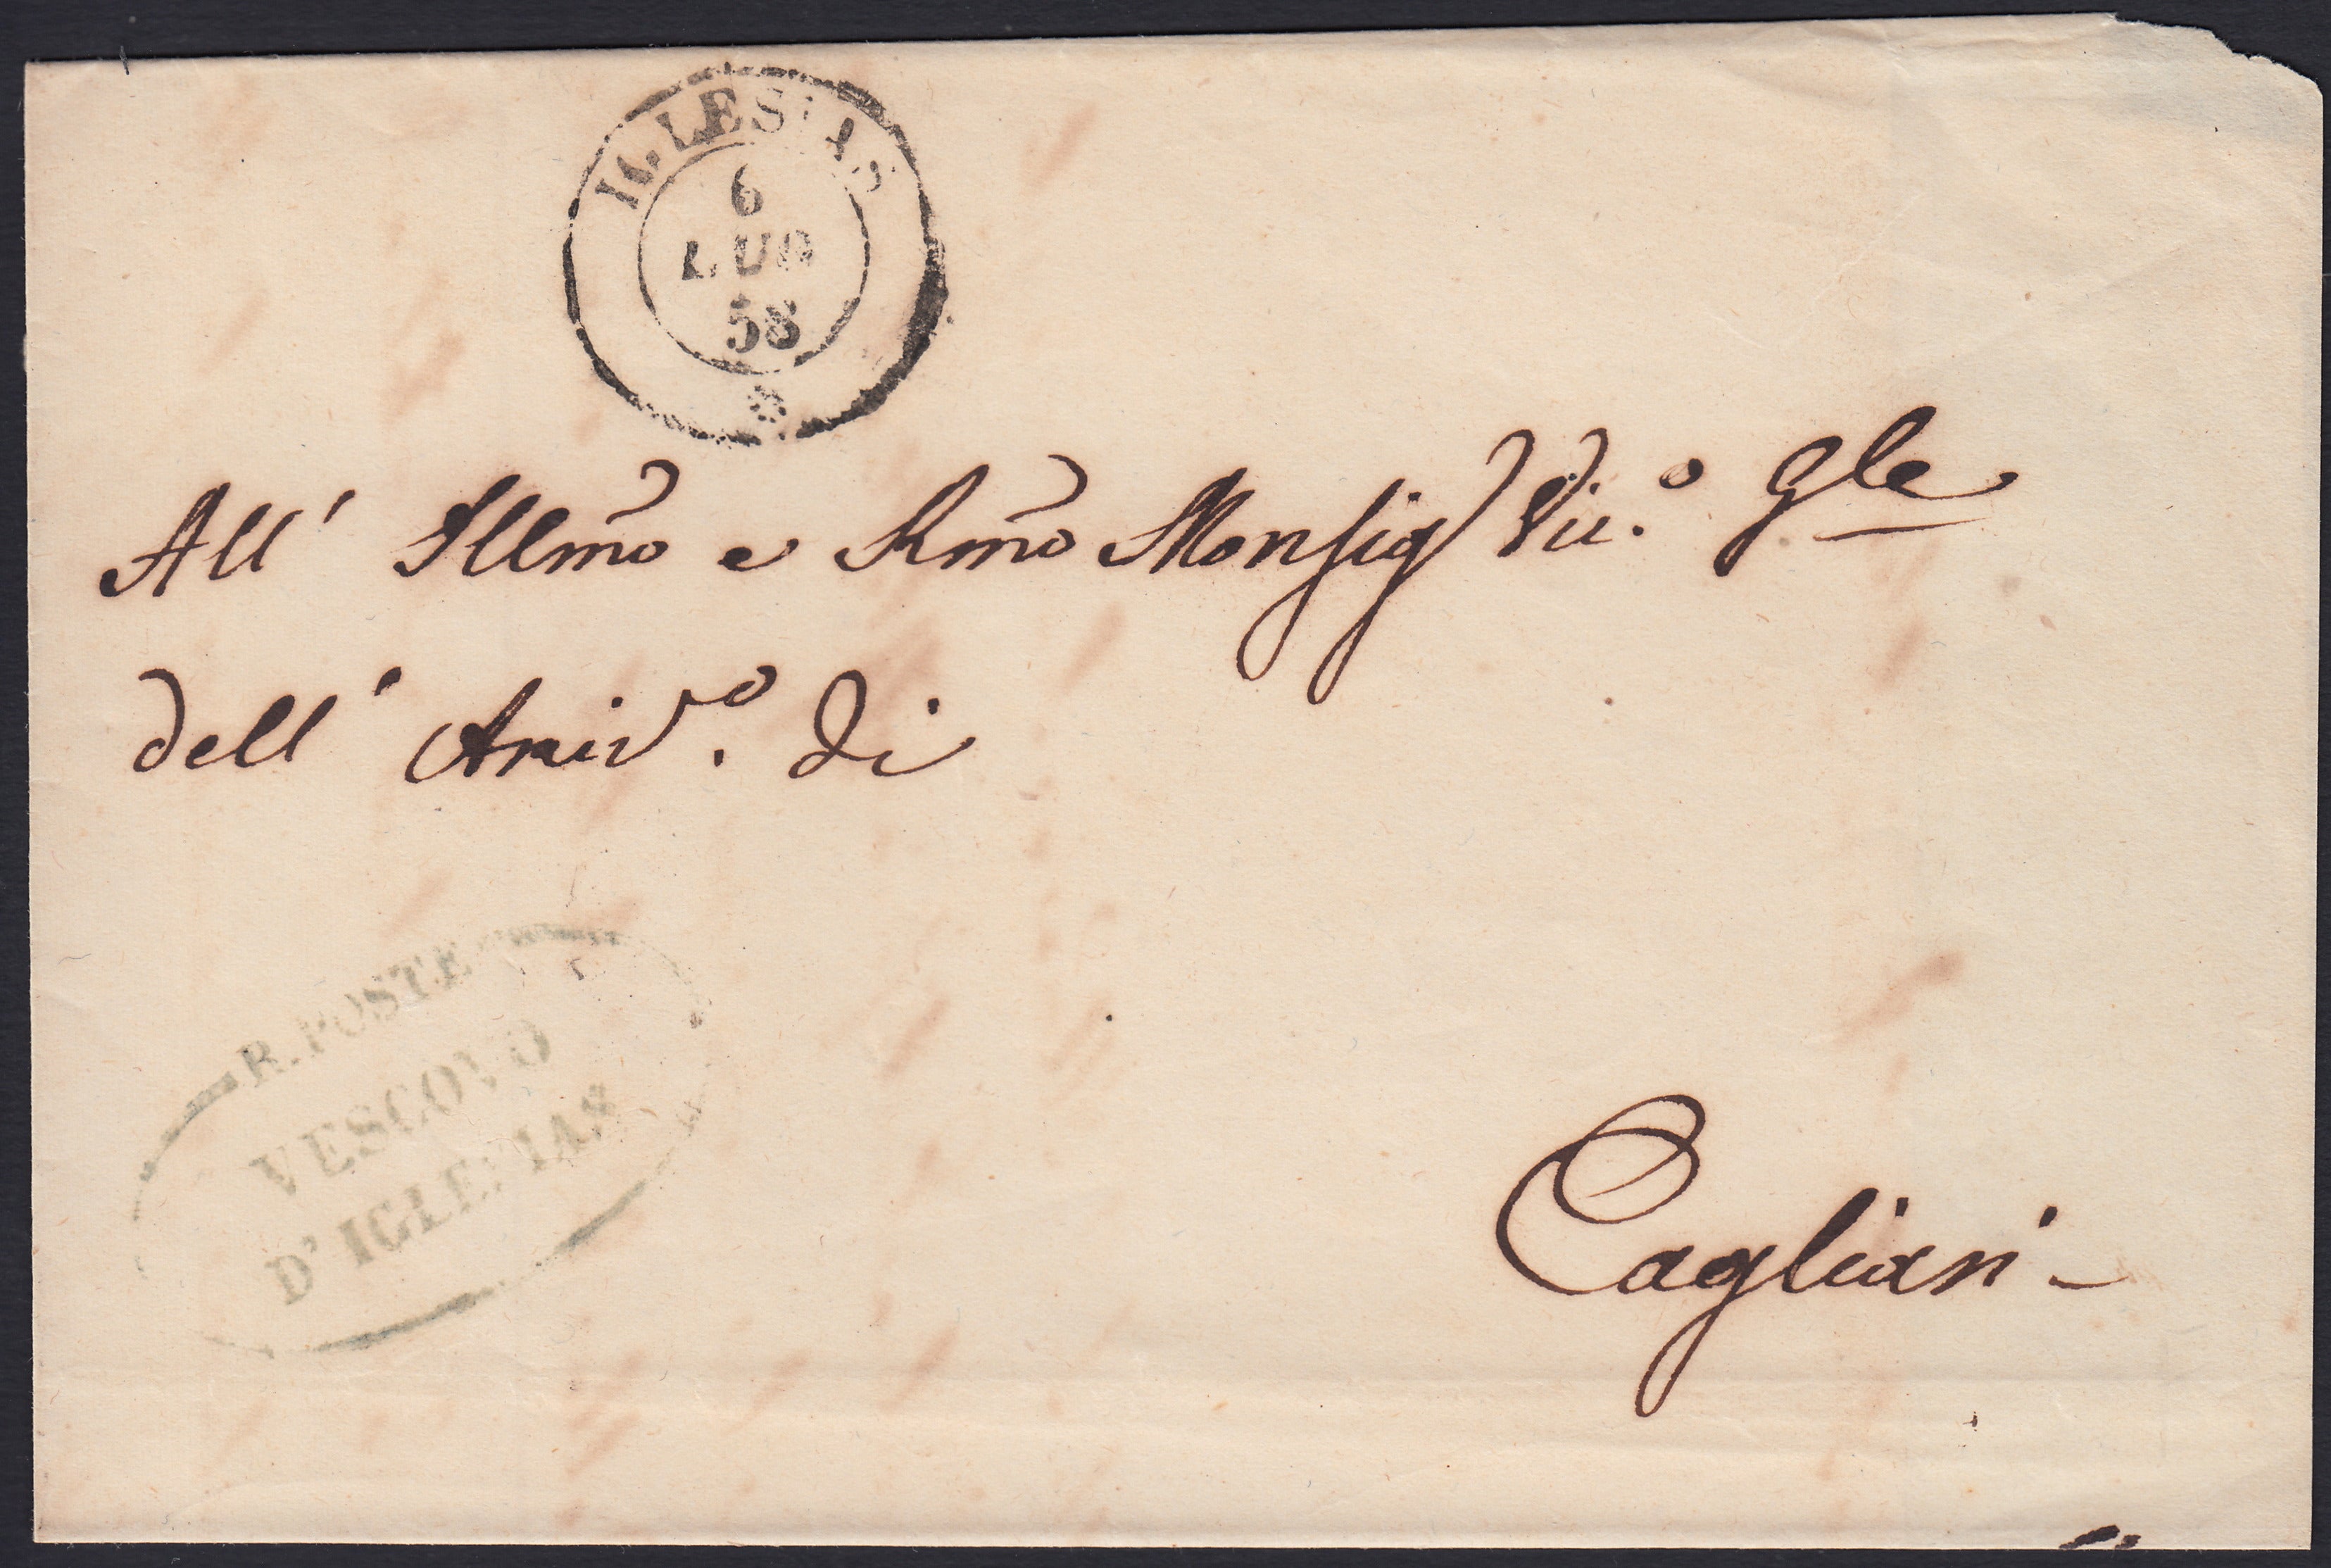 IGLESIAS
6
LUG
58
All' Illmo e Rmo Monsig Vic.º Gle
dell' Arciv.º di
Cagliari -
R. POSTE
VESCOVO
D' IGLESIAS